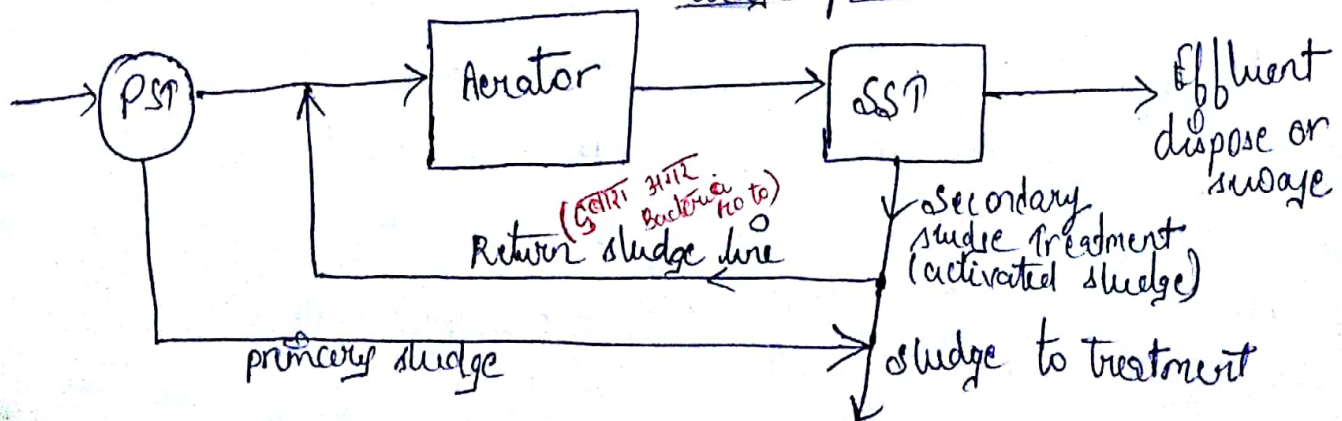 PST
Aerator
SST
Effluent
dispose or
(दुबारा अगर
Bacteria
no to)
Return sludge line
Secondary
sludge Treatment
(activated sludge)
primary sludge
sludge to treatment